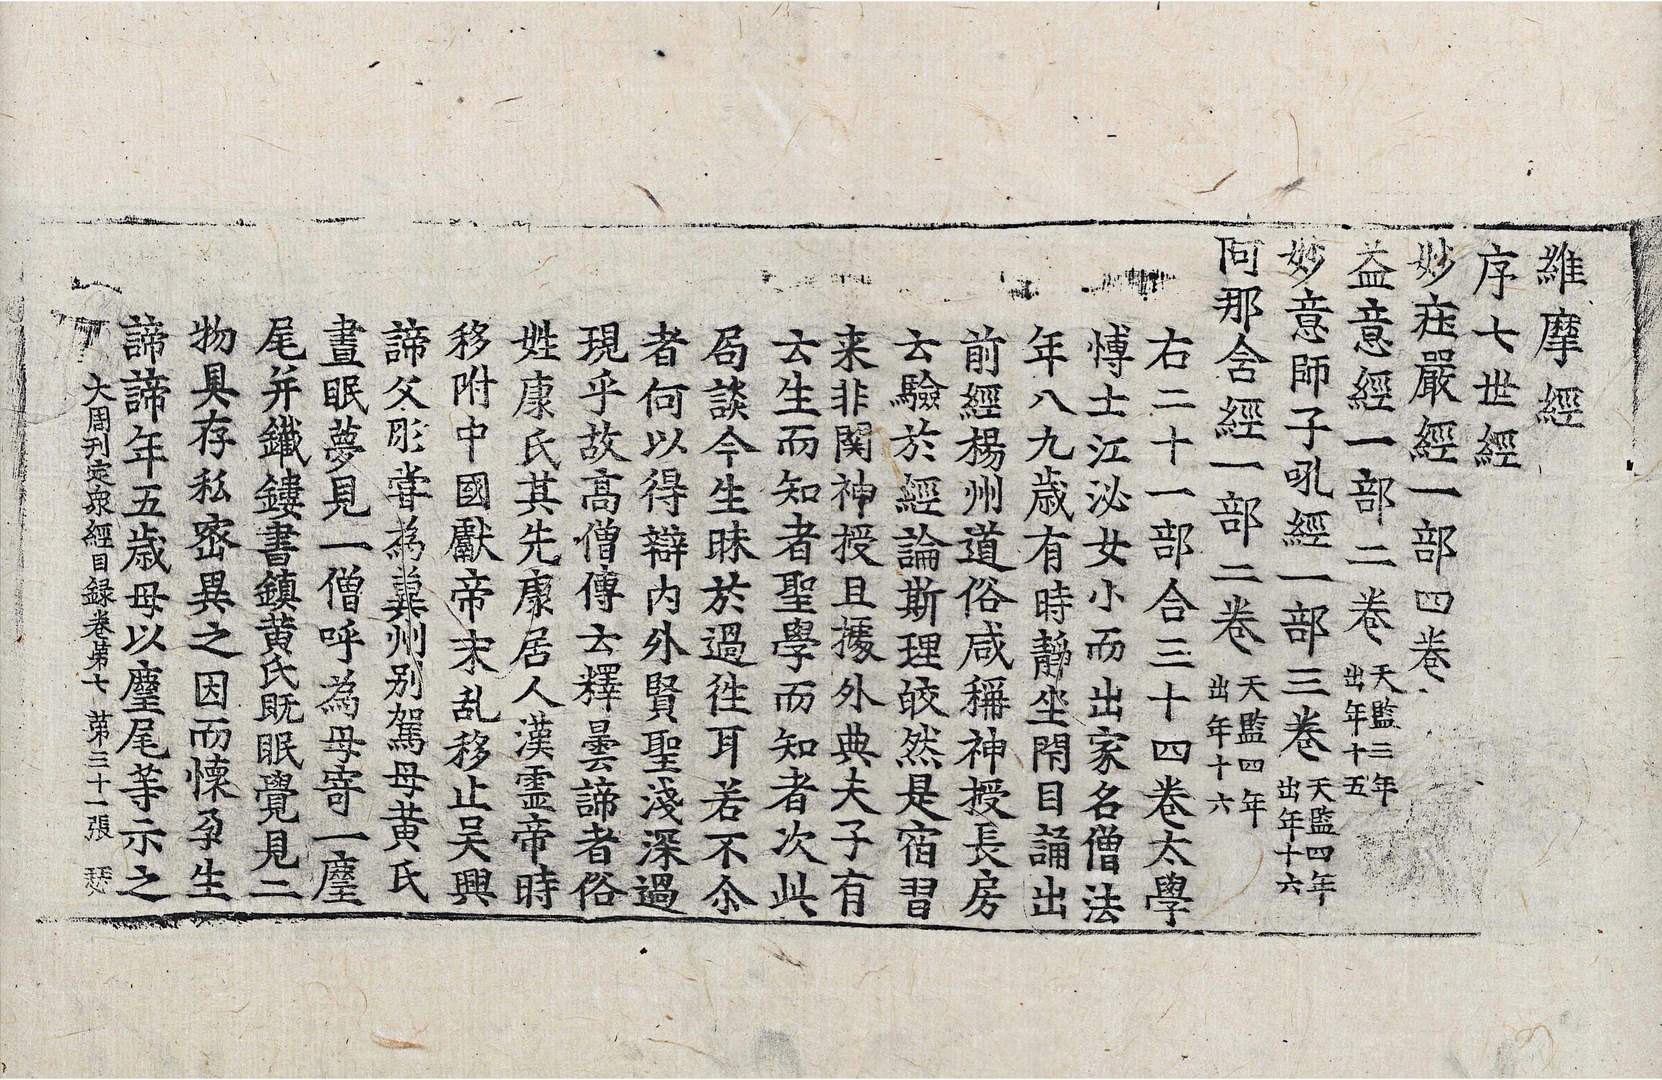 維摩經
序七世經
妙莊嚴經一部四卷
益意經一部二卷 天監三年出年十五
妙意師子吼經一部三卷 天監四年出年十六
阿那含經一部二卷 天監四年出年十六
右二十一部合三十四卷太學
博士江泌女小而出家名僧法
年八九歲有時靜坐閇目誦出
前經楊州道俗咸稱神授長房
云驗於經論斯理皎然是宿習
来非関神授且據外典夫子有
云生而知者聖學而知者次此
局談今生昧於過徃耳若不尒
者何以得辯内外賢聖淺深過
現乎故高僧傳云釋曇諦者俗
姓康氏其先康居人漢靈帝時
移附中國獻帝末乱移止吴興
諦父肜甞為兾州别駕母黃氏
晝眠夢見一僧呼為母寄一麈
尾并鐵鏤書鎮黃氏既眠覺見二
物具存私密異之因而懷孕生
諦諦年五歲母以麈尾等示之
大周刊定衆經目録卷第七 第三十一張 瑟